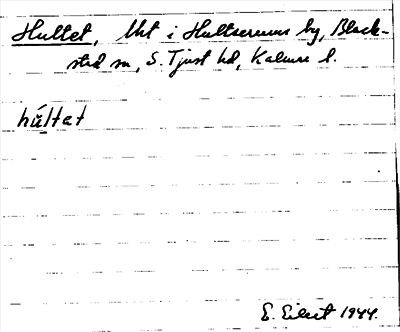 Hultet, Mst i Hultserums by, Black-
stad sn, S. Tjust hd, Kalmar l.
húltat
E. Eilert 1944.